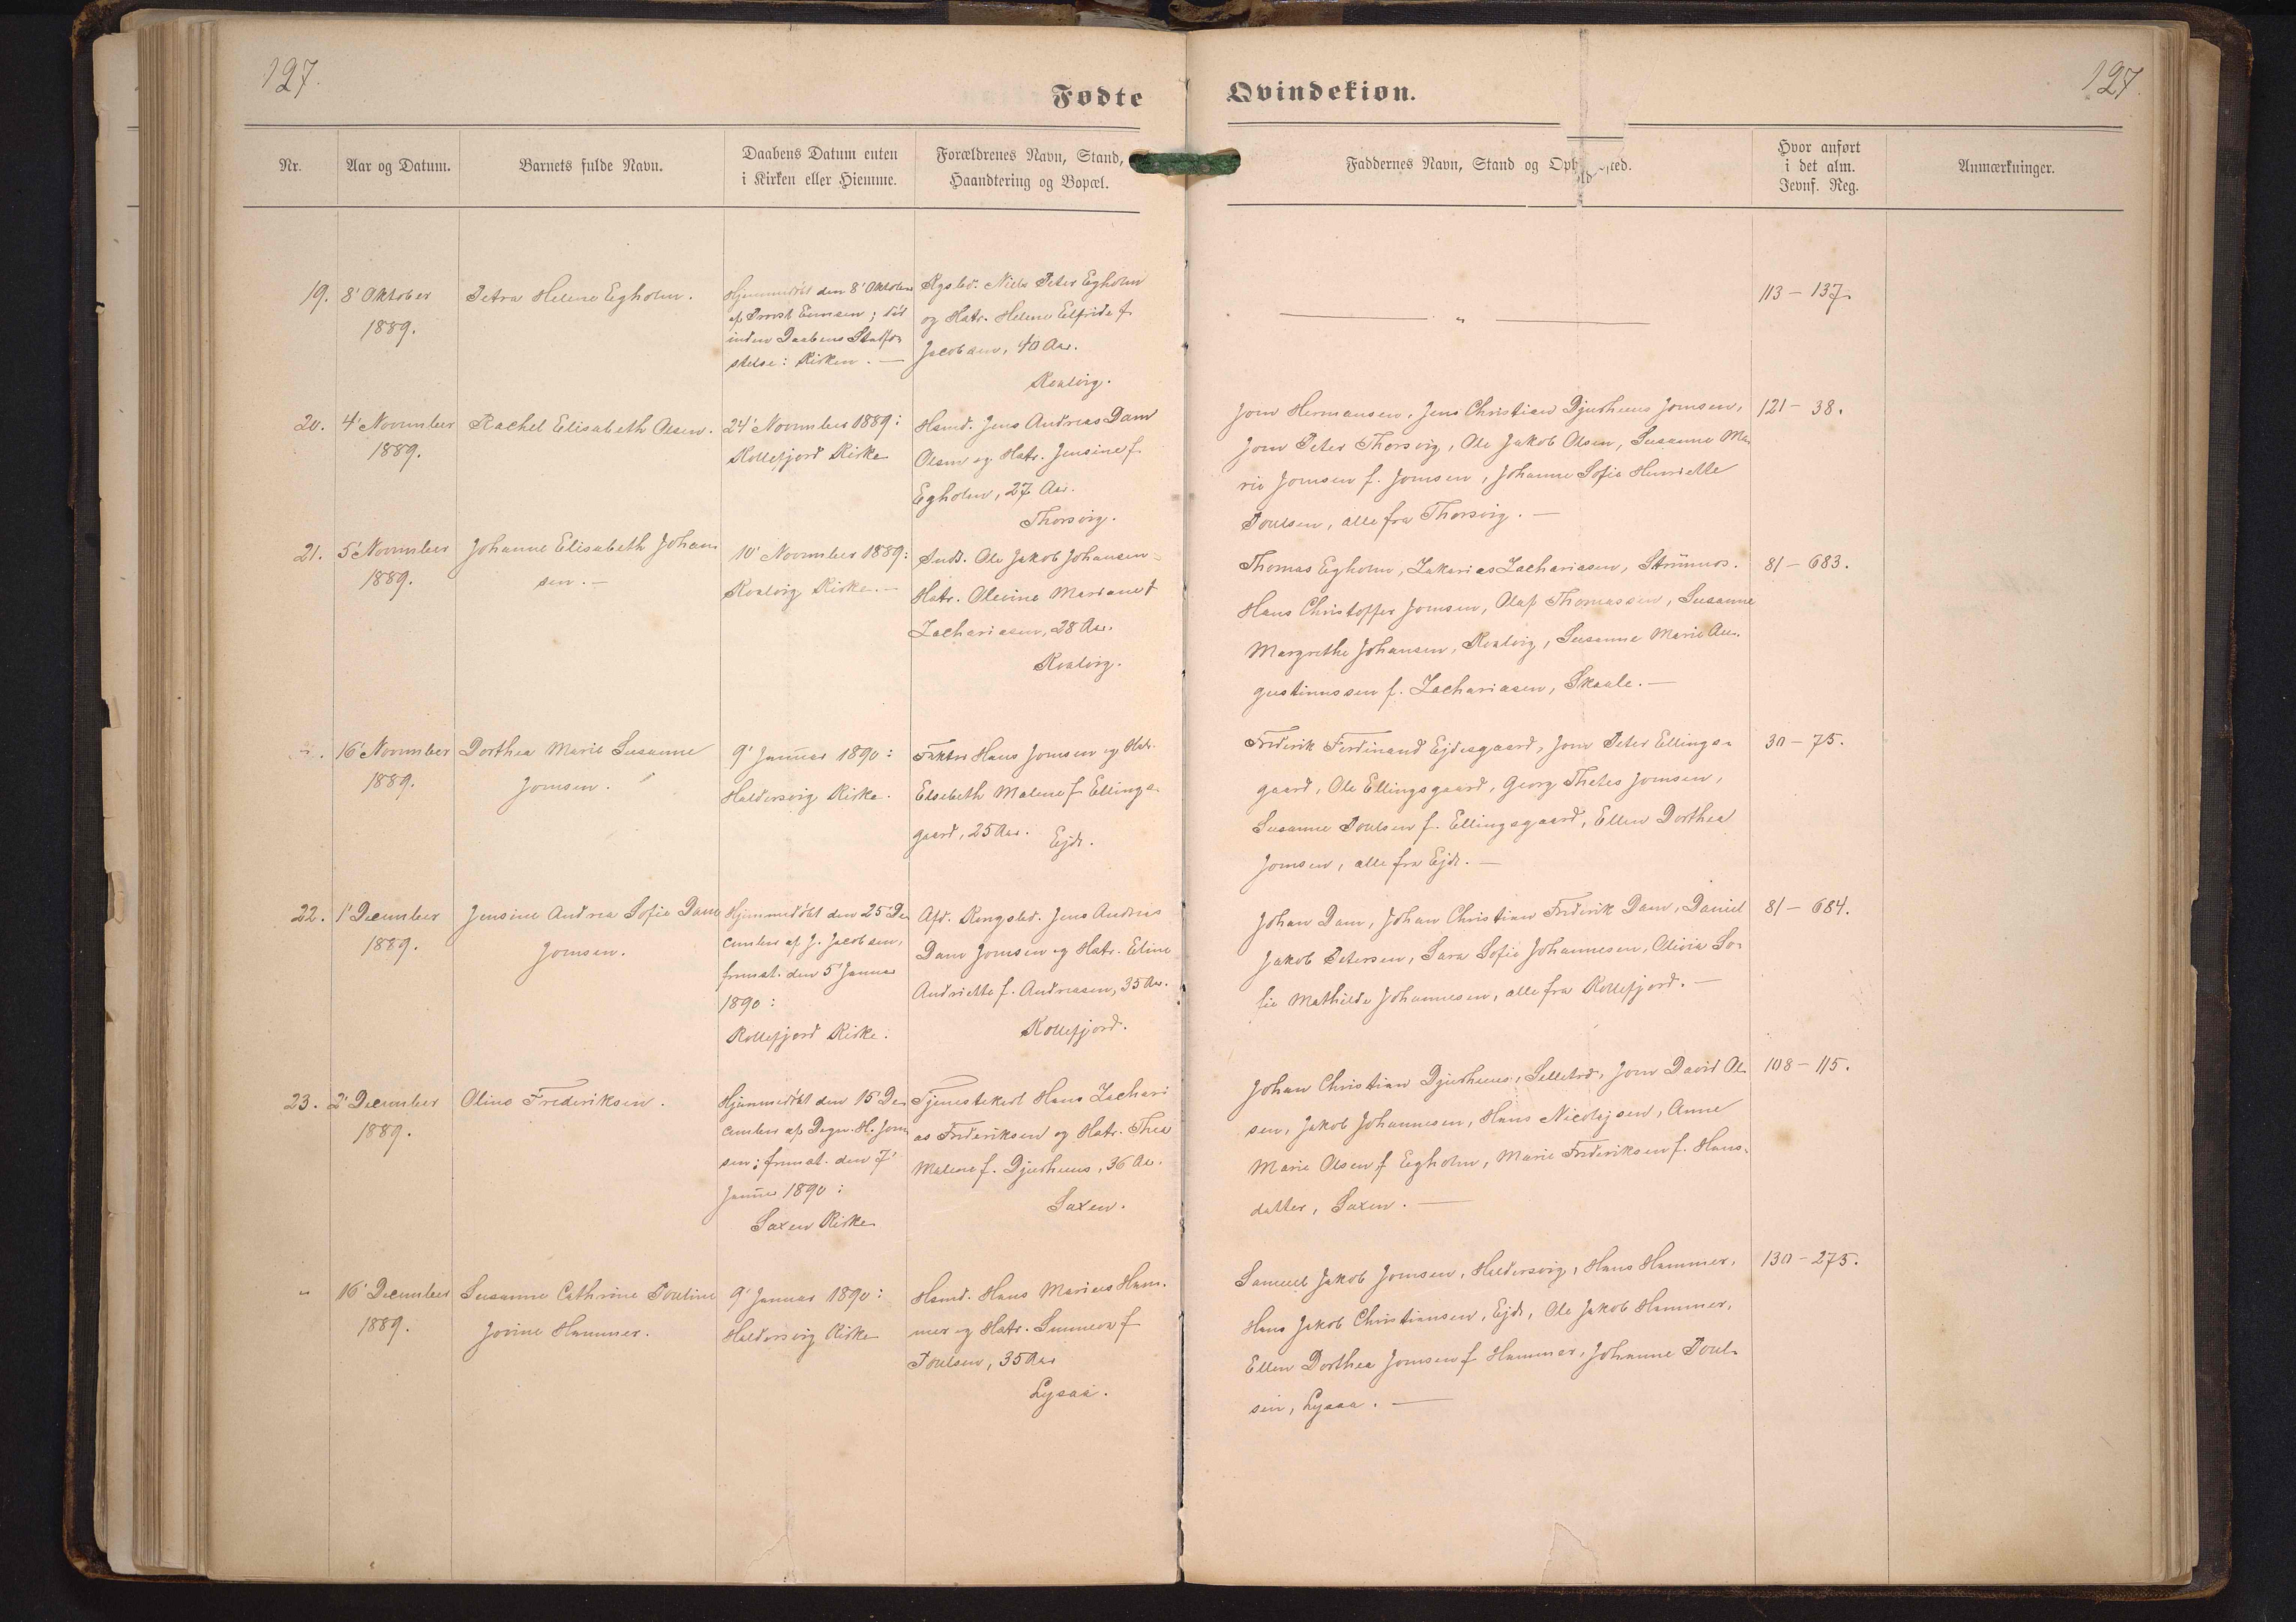 127.
127.
Fødte
Qvindekiøn.
Nr.
Aar og Datum.
Barnets fulde Navn.
Daabens Datum enten
i Kirken eller Hiemme.
Forældrenes Navn, Stand,
Haandtering og Bopæl.
Faddernes Navn, Stand og
Hvor anført
i det alm.
Jevnf. Reg.
Anmærkninger.
19.
8' Oktober
1889.
Petra Helene Egholm.
Hjemmedøbt den 8' Oktober
af Provst Evensen; død
inden Daabens Stadfæ-
stelse: Kirken. —
Niels Peter Egholm
og Hstr. Helene Elfride f.
Jacobsen, 40 Aar.
Kvalvig.
— " —
113 — 137.
20.
4' November
1889.
Rachel Elisabeth Olsen.
24' November 1889:
Kollefjord Kirke
Hsmd. Jens Andreas Dam
Olsen og Hstr. Jensine f.
Egholm, 27 Aar.
Thorsvig.
Joen Hermansen, Jens Christian Djurhuus Joensen,
Joen Peter Thorsvig, Ole Jakob Olsen, Susanne Ma-
rie Joensen f. Joensen, Johanne Sofie Henriette
Poulsen, alle fra Thorsvig. —
121 — 38.
21.
5' November
1889.
Johanne Elisabeth Johan
sen. —
10' November 1889:
Kvalvig Kirke. —
Ole Jakob Johansen
Hstr. Olevine Mariane f
Zachariasen, 28 Aar.
Kvalvig.
Thomas Egholm, Zakarias Zachariasen, Strømnæs.
Hans Christoffer Joensen, Olaf Thomassen, Susanne
Margrethe Johansen, Kvalvig, Susanne Marie Au-
gustinussen f. Zachariasen, Skaale. —
81 — 683.
16' November
1889.
Dorthea Marie Susanne
Joensen.
9' Januar 1890:
Haldersvig Kirke.
Hans Joensen og Hstr.
Elsebeth Malene f Ellings-
gaard, 25 Aar.
Ejde.
Frederik Ferdinand Ejdesgaard, Joen Peter Ellings-
gaard, Ole Ellingsgaard, Georg Joensen,
Susanne Poulsen f. Ellingsgaard, Ellen Dorthea
Joensen, alle fra Ejde. —
30 — 75.
22.
1' December
1889.
Jensine Andrea Sofie Dam
Joensen.
Hjemmedøbt den 25' De-
cember af J. Jacobsen,
fremst. den 5' Januar
1890:
Kollefjord Kirke.
Afd. Kongsbd. Jens Andreas
Dam Joensen og Hstr. Eline
Andriette f. Andreasen, 35 Aar.
Kollefjord.
Johan Dam, Johan Christian Frederik Dam, Daniel
Jakob Petersen, Sara Sofie Johannesen, Olivia So-
fie Mathilde Johannesen, alle fra Kollefjord. —
81 — 684.
23.
2' December
1889.
Oline Frederiksen.
Hjemmedøbt den 15' De-
cember af Degn. H. Joen
sen; fremst. den 7'
Januar 1890:
Saxen Kirke
Tjenestekarl Hans Zachari
as Frederiksen og Hstr. Thea
Malene f. Djurhuus, 36 Aar.
Saxen.
Johan Christian Djurhuus, Selletræ, Joen David Ol-
sen, Jakob Johannesen, Hans Nicolajsen, Anne
Marie Olsen f Egholm, Marie Frederiksen f. Hans-
datter, Saxen. —
108 — 115.
"
16' December
1889.
Susanne Cathrine Pouline
Jovine Hammer.
9' Januar 1890:
Haldersvig Kirke
Hsmd. Hans Marius Ham-
mer og Hstr. f
Poulsen, 35 Aar
Lysaa.
Samuel Jakob Joensen, Haldersvig, Hans Hammer,
Hans Jakob Christiansen, Ejde, Ole Jakob Hammer,
Ellen Dorthea Joensen f Hammer, Johanne Poul-
sen, Lysaa. —
130 — 275.